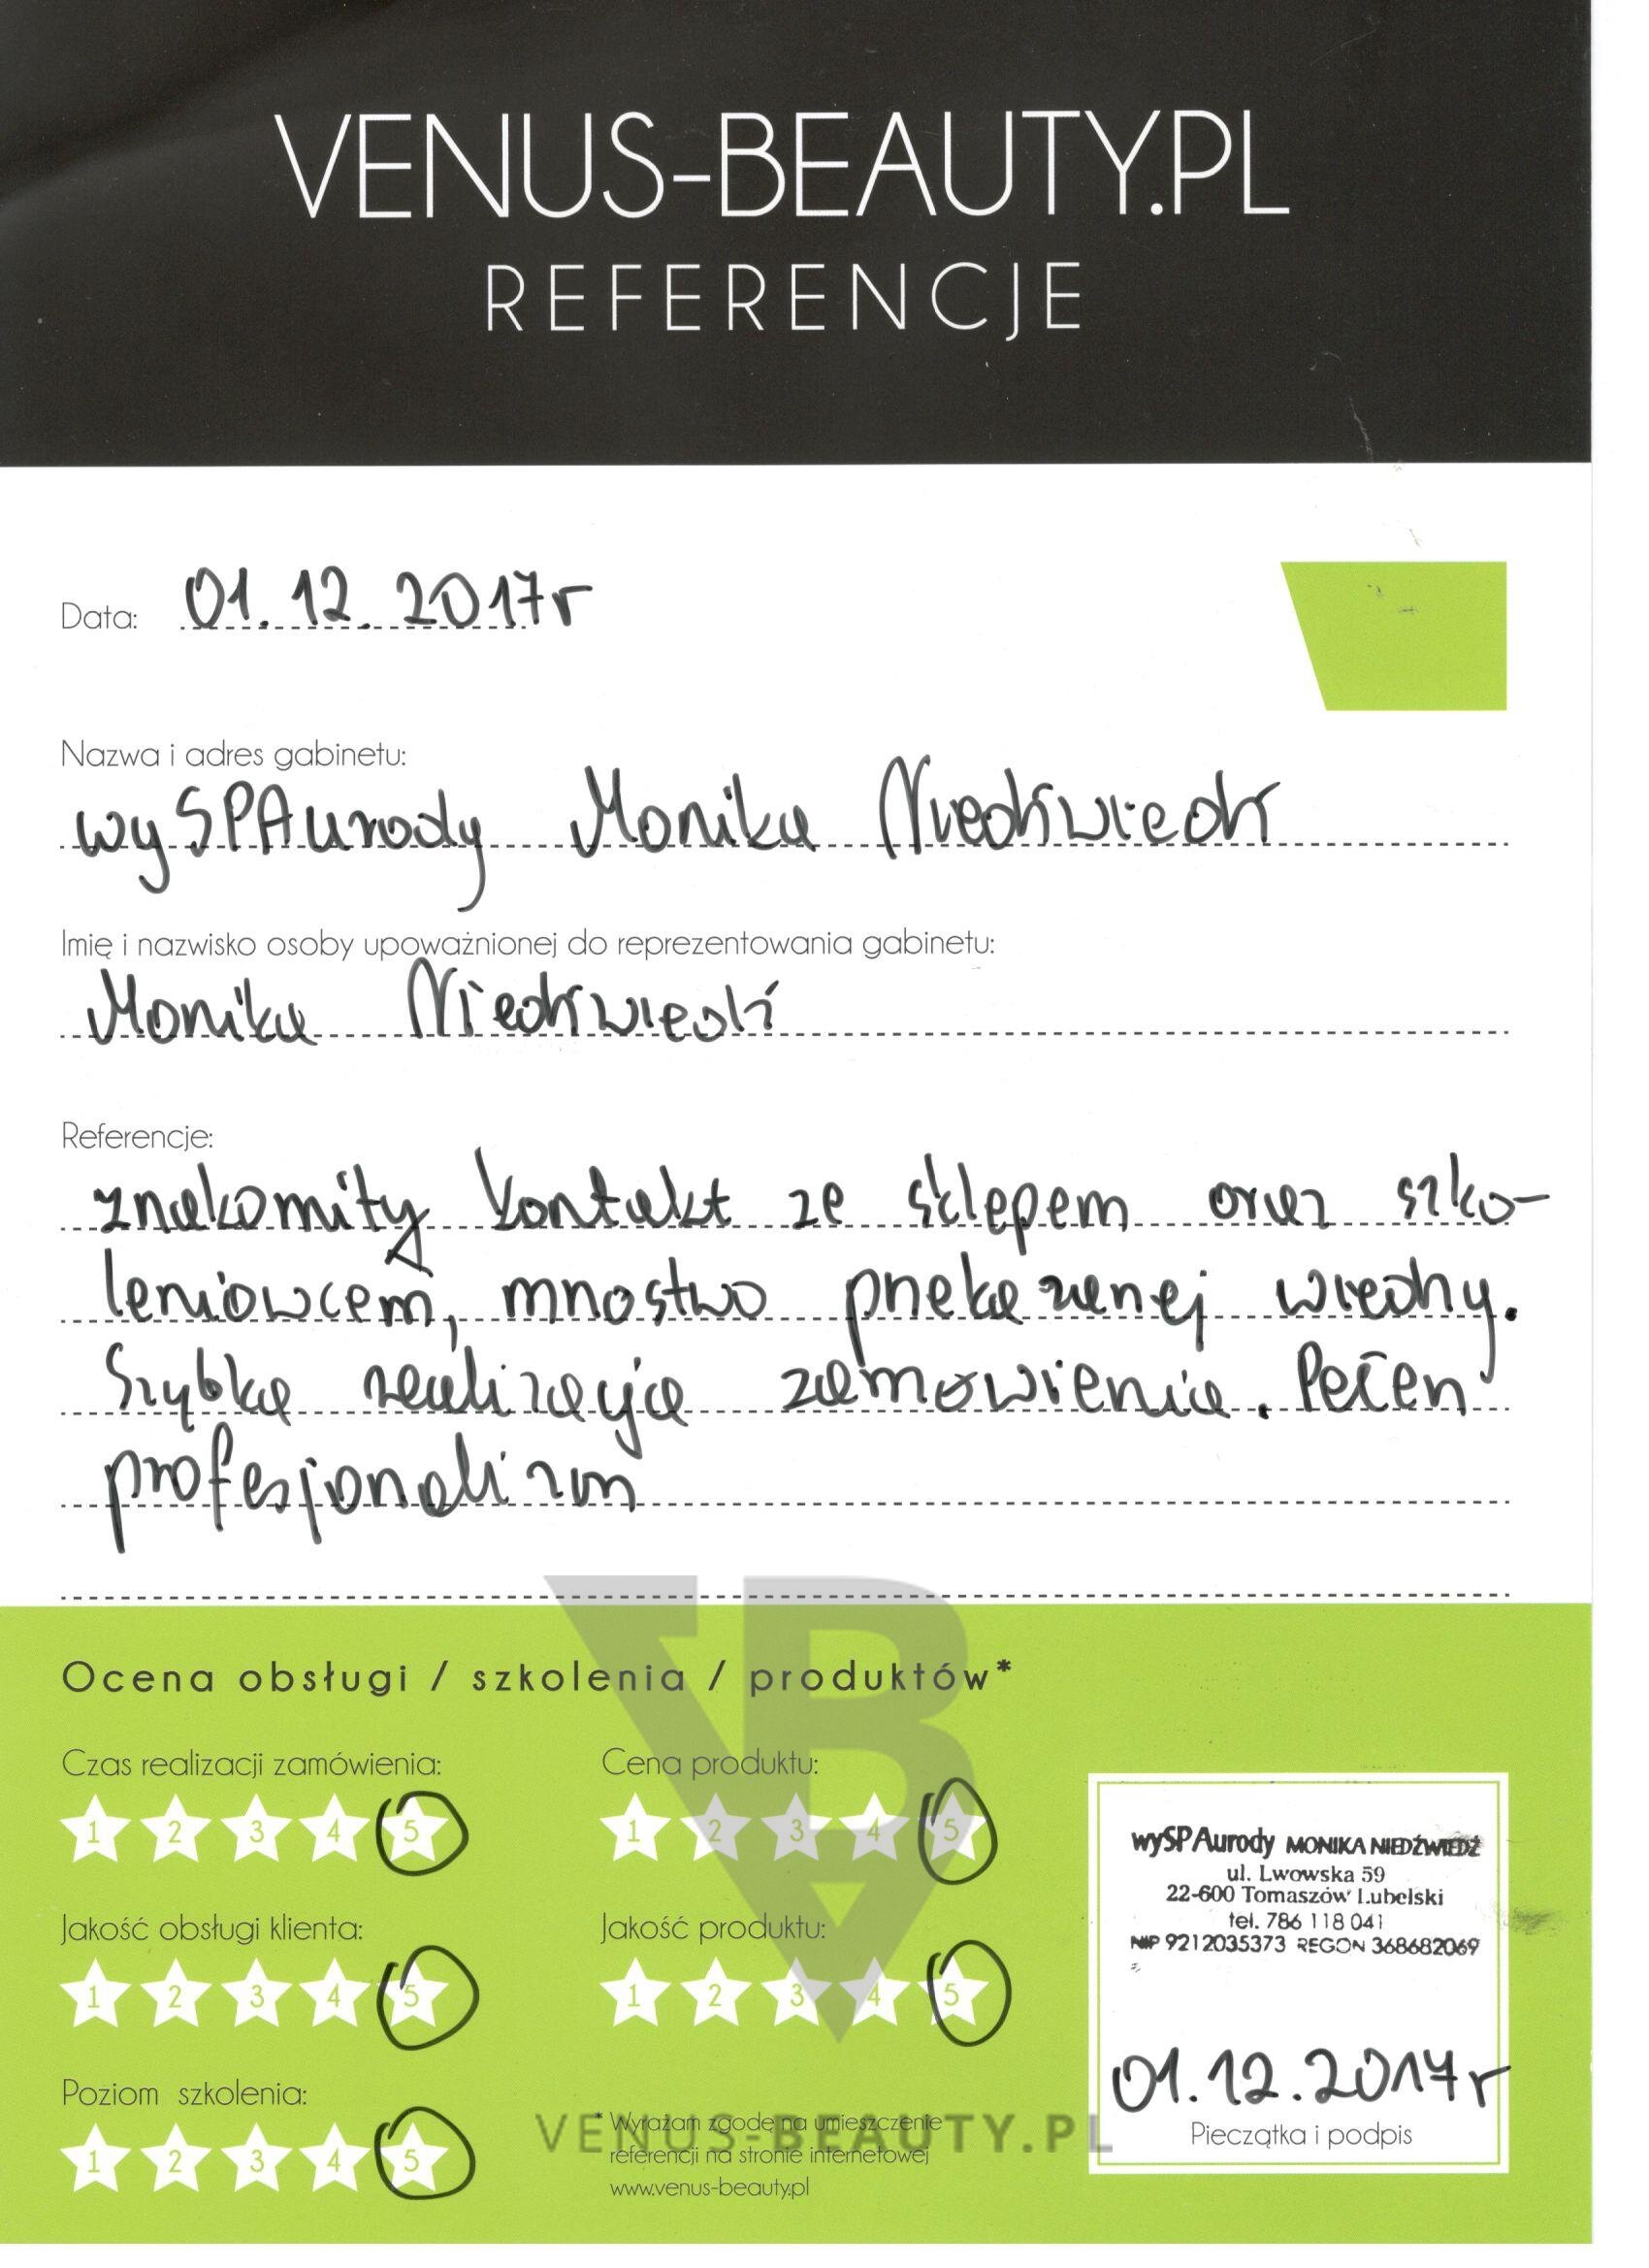 VENUS-BEAUTY.PL
REFERENCJE
Data: 01.12.2017r
Nazwa i adres gabinetu:
wySPAurody Monika Niedźwiedź
Imię i nazwisko osoby upoważnionej do reprezentowania gabinetu:
Monika Niedźwiedź
Referencje:
znakomity kontakt ze sklepem oraz szko-
leniowcem, mnostwo przekazanej wiedzy.
Szybka realizacja zamowienia. Pełen
profesjonalizm
Ocena obsługi / szkolenia / produktów*
Czas realizacji zamówienia:
1 2 3 4 5
Cena produktu:
1 2 3 4 5
Jakość obsługi klienta:
1 2 3 4 5
Jakość produktu:
1 2 3 4 5
Poziom szkolenia:
1 2 3 4 5
* Wyrażam zgodę na umieszczenie
referencji na stronie internetowej
www.venus-beauty.pl
VENUS-BEAUTY.PL
wySPAurody MONIKA NIEDŹWIEDŹ
ul. Lwowska 59
22-600 Tomaszów Lubelski
tel. 786 118 041
NIP 9212035373 REGON 368682069
01.12.2017r
Pieczątka i podpis
VB